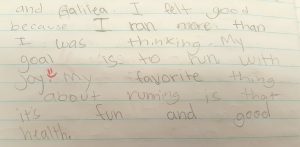 and Galilea. I felt good
because I ran more than
I was thinking. My
goal is to run with
joy. My favorite thing
about running is that
it's fun and good
health.